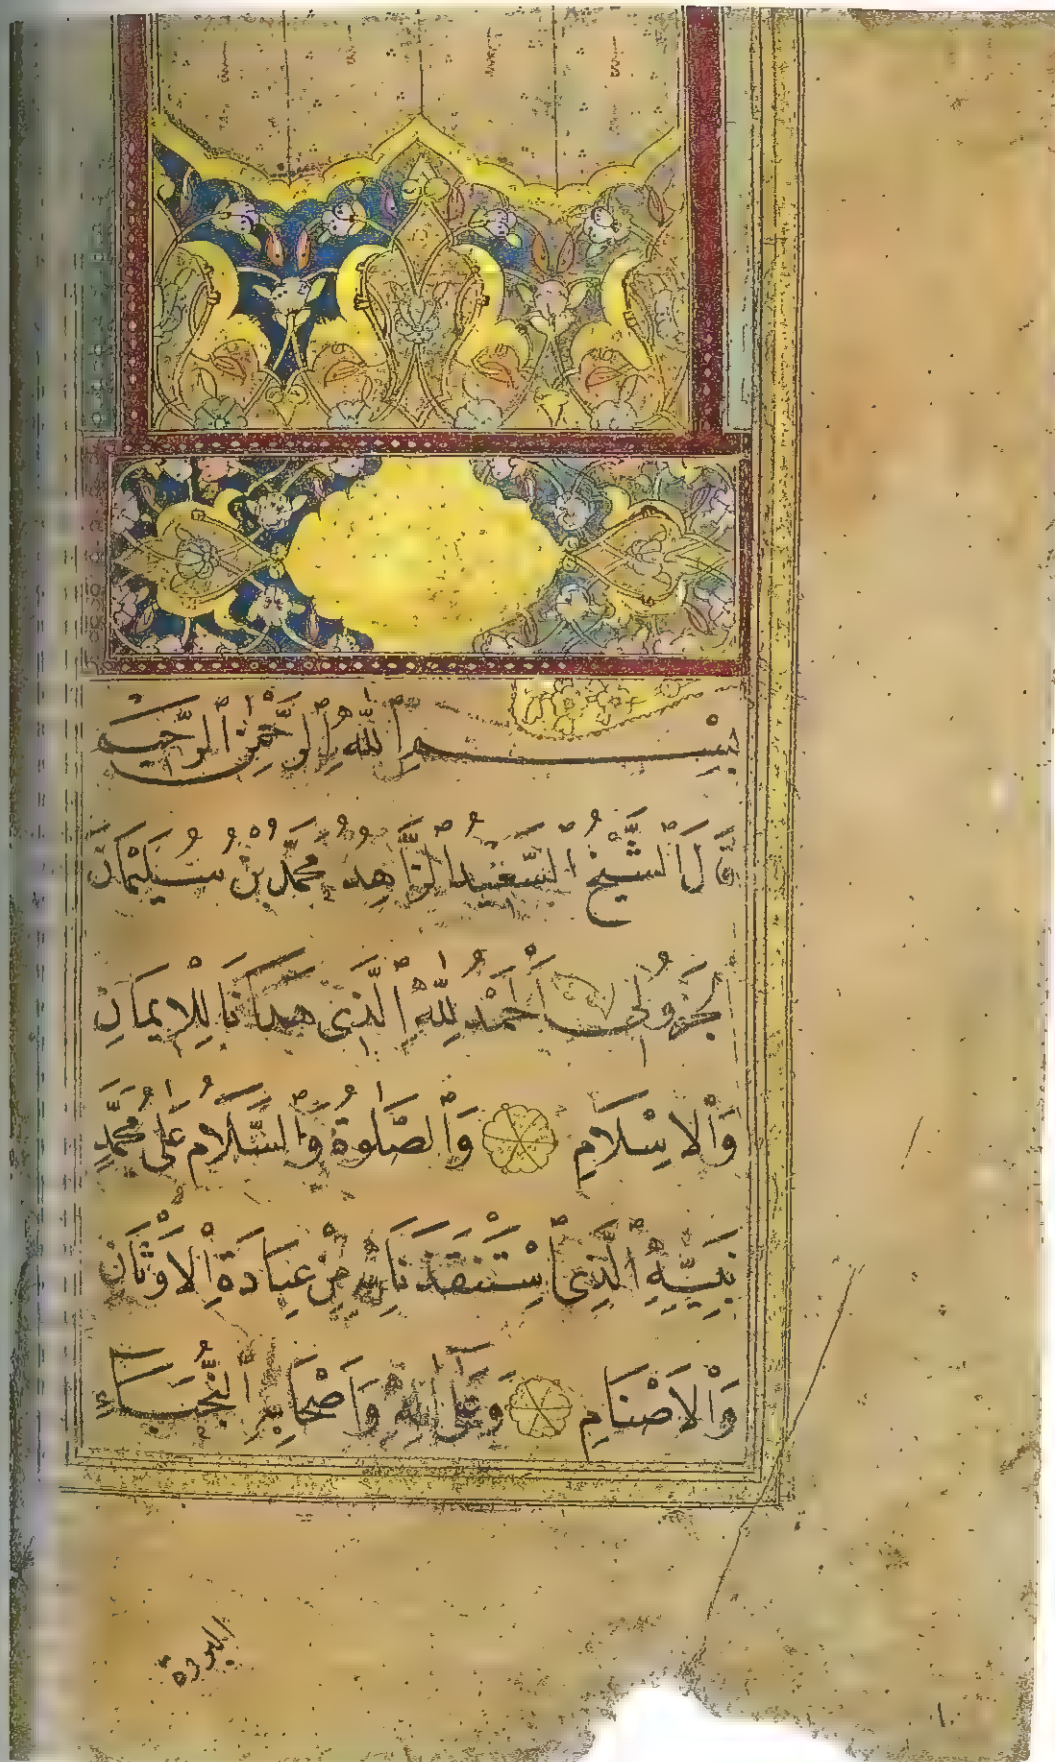 بِسْمِ اللّٰهِ الرَّحْمٰنِ الرَّحِيمِ
قَالَ الشَّيْخُ السَّعِيدُ الزَّاهِدُ مُحَمَّدُ بْنُ سُلَيْمَانَ
الجَزُولِى اَلْحَمْدُ لِلّٰهِ الَّذِى هَدَانَا لِلْاِيمَانِ
وَالْاِسْلَامِ وَالصَّلٰوةُ وَالسَّلَامُ عَلٰى مُحَمَّدٍ
نَبِيِّهِ الَّذِى اسْتَنْقَذَنَا بِهِ مِنْ عِبَادَةِ الْاَوْثَانِ
وَالْاَصْنَامِ وَعَلٰى اٰلِهِ وَاَصْحَابِهِ النُّجَبَاءِ
البررة